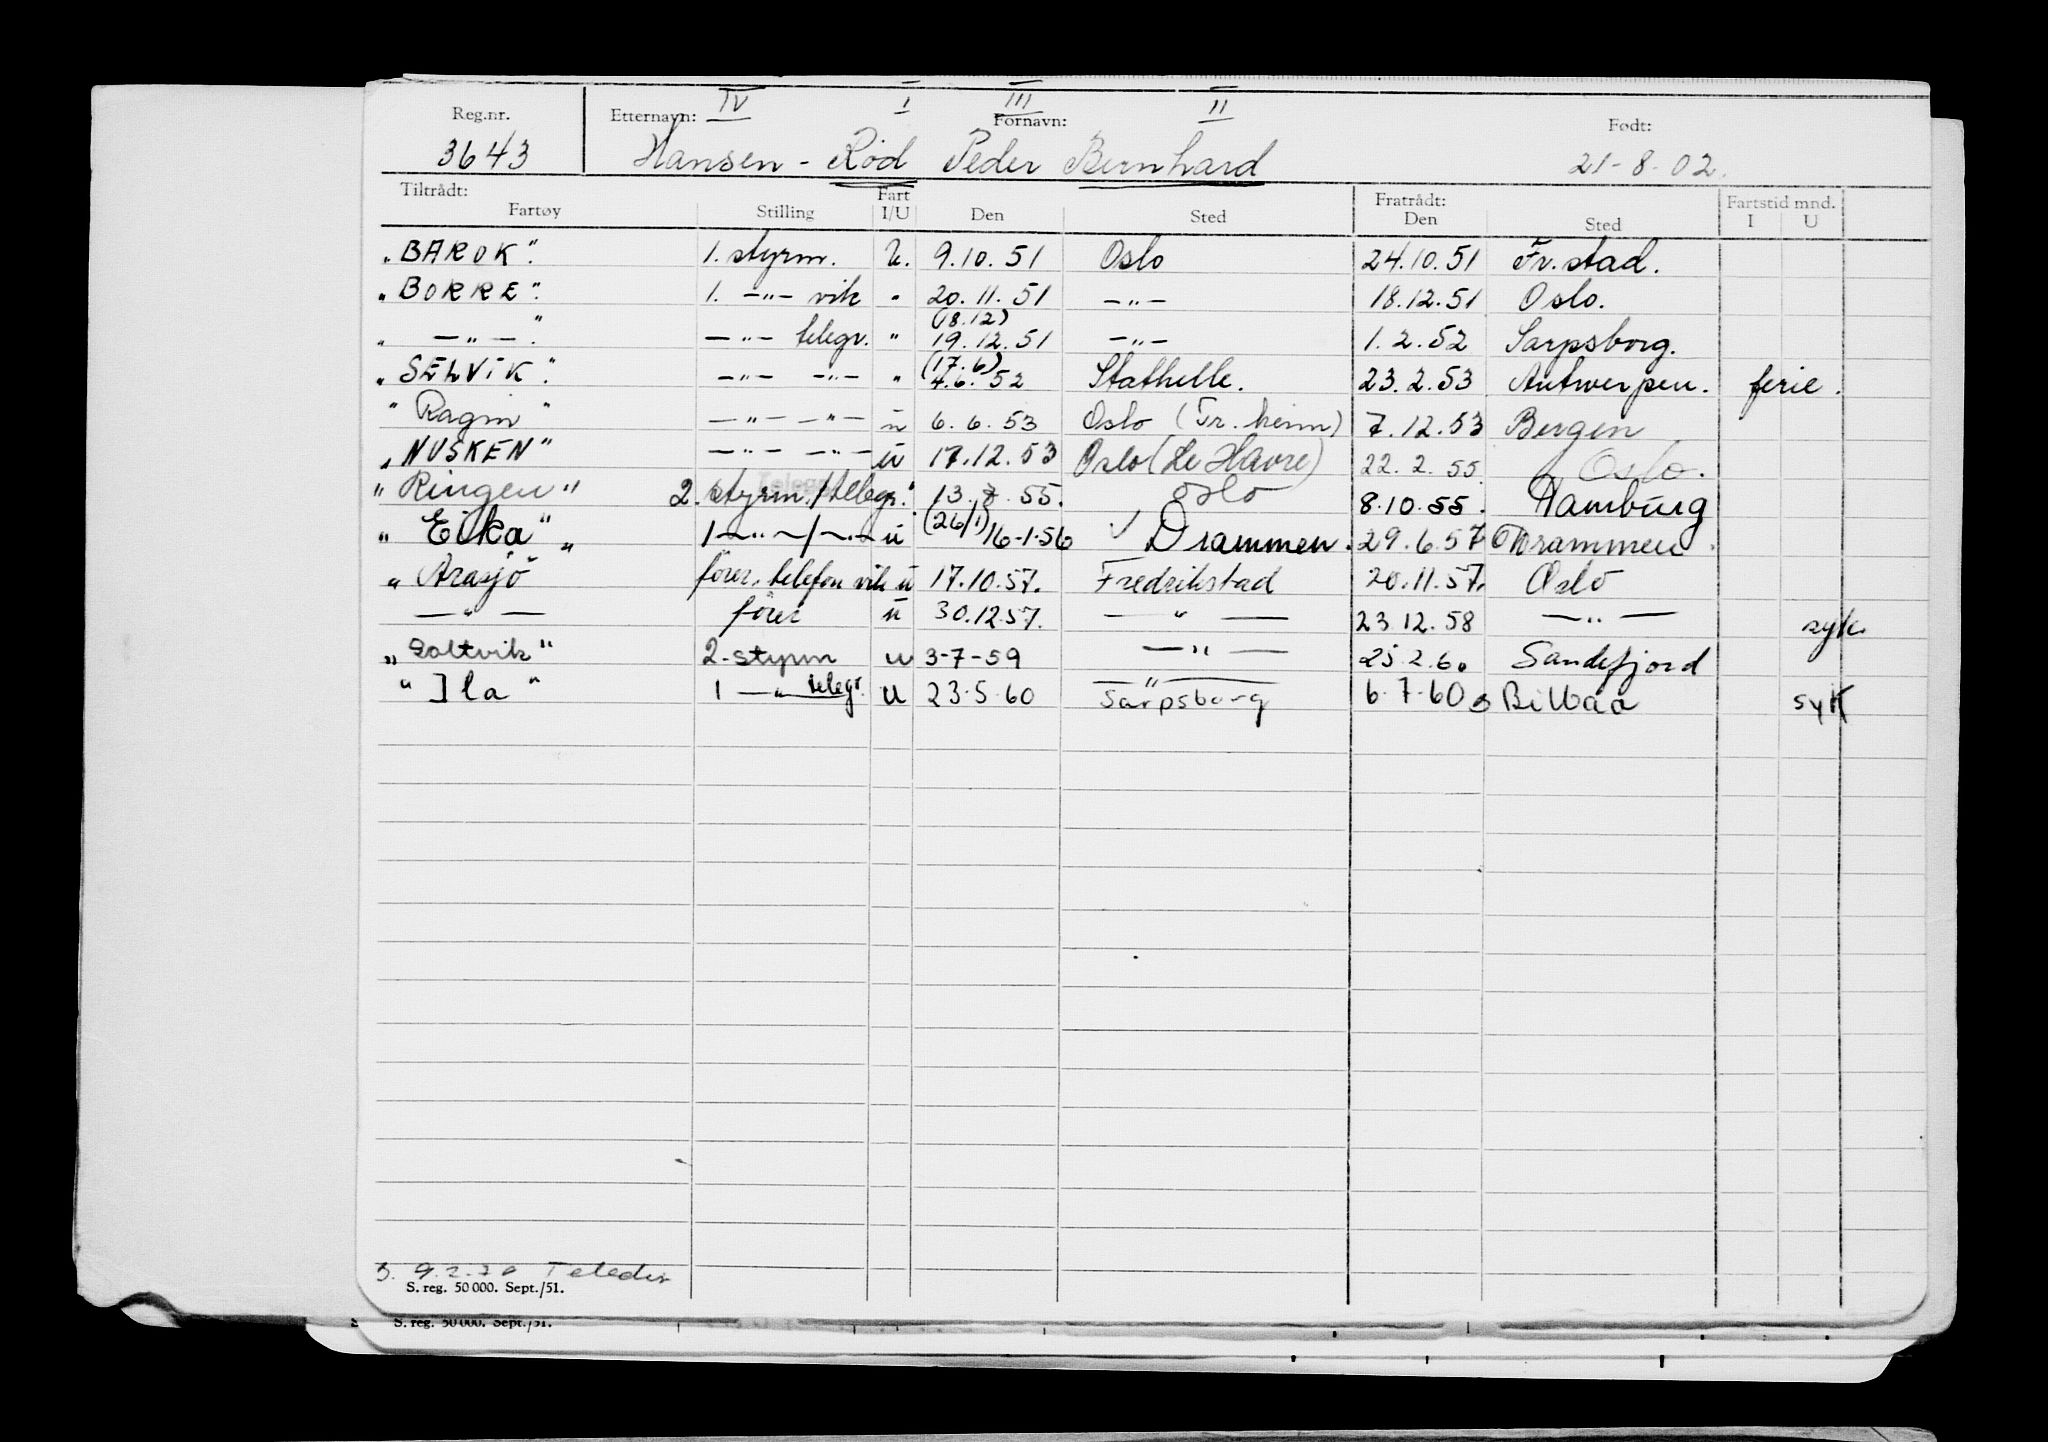 IV I III II
Reg.nr. Etternavn: Fornavn: Født:
3643 Hansen - Rød Peder Bernhard 21-8-02.
Tiltrådt: Fratrådt: Fartstid mnd.
Fartøy Stilling Fart I/U Den Sted Den Sted I U
„BAROK". 1. styrm. U. 9.10.51 Oslo 24.10.51 Fr.stad.
„BORRE". 1. -"- vik " 20.11.51 -"- 18.12.51 Oslo.
(18.12)
„ -"- ". -"- telegr. " 19.12.51 -"- 1.2.52 Sarpsborg.
(17.6)
„SELVIK". -"- -"- " 4.6.52 Stathelle. 23.2.53 Antwerpen. ferie.
" Ragni " -"- -"- u 6.6.53 Oslo (Tr.heim) 7.12.53 Bergen
„NUSKEN" -"- -"- u 17.12.53 Oslo (Le Havre) 22.2.55 Oslo.
"Ringen" 2. styrm./telegr. " 13.7.55. Oslo 8.10.55. Hamburg
„ Eika " 1 -"- / -"- u (26/1) 16-1-56 ✓ Drammen. 29.6.57 Drammen.
„ Arasjö " förer, telefon vik u 17.10.57. Fredrikstad 20.11.57. Oslo
-"- förer u 30.12.57. -"- 23.12.58 -"- syk.
„Soltvik" 2. styrm u 3-7-59 -"- 25.2.60 Sandefjord
" Ila " 1 -"- telegr. u 23.5.60 -"- Sarpsborg 6.7.60 Bilbao syk
9.2.70
S. reg. 50 000. Sept./51.
S. reg. 50 000. Sept./51.